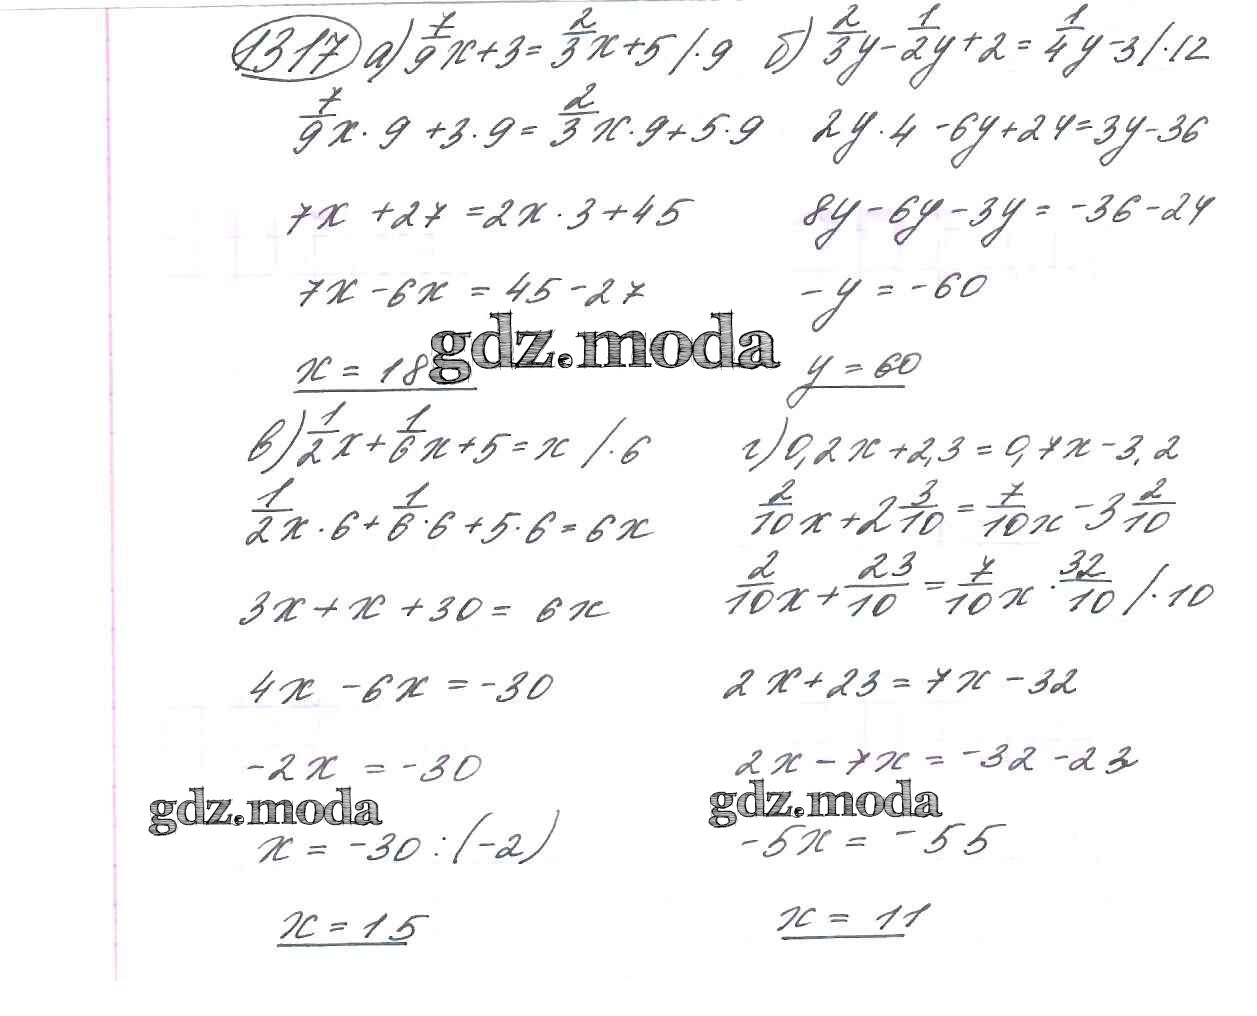 1317 а) 7/9 x + 3 = 2/3 x + 5 / · 9
7/9 x · 9 + 3 · 9 = 2/3 x · 9 + 5 · 9
7x + 27 = 2x · 3 + 45
7x - 6x = 45 - 27
x = 18
б) 2/3 y - 1/2 y + 2 = 1/4 y - 3 / · 12
2y · 4 - 6y + 24 = 3y - 36
8y - 6y - 3y = -36 - 24
-y = -60
y = 60
gdz.moda
в) 1/2 x + 1/6 x + 5 = x / · 6
1/2 x · 6 + 1/6 · 6 + 5 · 6 = 6x
3x + x + 30 = 6x
4x - 6x = -30
-2x = -30
gdz.moda
x = -30 : (-2)
x = 15
г) 0,2x + 2,3 = 0,7x - 3,2
2/10 x + 2 3/10 = 7/10 x - 3 2/10
2/10 x + 23/10 = 7/10 x · 32/10 / · 10
2x + 23 = 7x - 32
2x - 7x = -32 - 23
gdz.moda
-5x = -55
x = 11